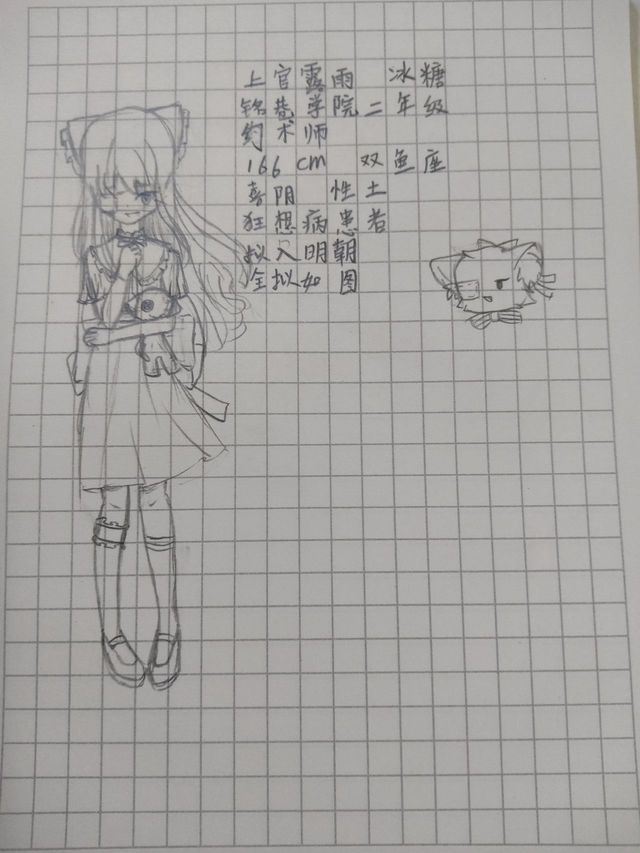 上官露雨 冰糖
铭巷学院二年级
约术师
166cm 双鱼座
喜阴 性土
狂想病患者
拟入明朝
全拟如图